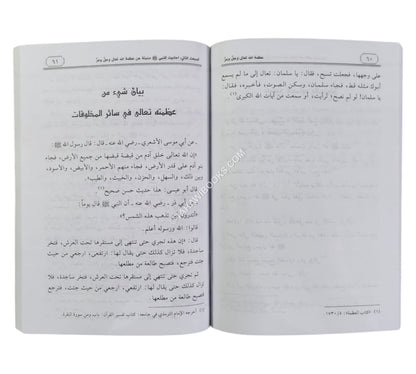 ٦٠ عظمة الله تعالى وجلَّ وعزَّ
على وجهها، فجعلت تسبح، فقال: يا سلمان: تعال إلى ما لم يسمع
أبوك مثله قط، فجاء سلمان، وسكن الصوت، فأخبره، فقال:
يا سلمان! لو لم تصح؛ لرأيت، أو سمعت من آيات الله الكبرى(١)
(١) «كتاب العظمة»: ٥/ ١٧٣٠
٦١
بيان شيء من
عظمته تعالى في سائر المخلوقات
عن أبي موسى الأشعري ـ رضي الله عنه ـ قال: قال رسول الله ﷺ:
«إن الله تعالى خلق آدم من قبضة قبضها من جميع الأرض، فجاء
بنو آدم على قدر الأرض، فجاء منهم الأحمر، والأبيض، والأسود،
وبين ذلك، والسهل، والحزن، والخبيث، والطيب».
قال أبو عيسى: هذا حديث حسن صحيح(١)
عن أبي ذر ـ رضي الله عنه ـ أن النبي ﷺ قال يوماً:
«أتدرون أين تذهب هذه الشمس؟»
قالوا: الله ورسوله أعلم.
قال: «إن هذه تجري حتى تنتهي إلى مستقرها تحت العرش، فتخر
ساجدة، فلا تزال كذلك حتى يقال لها: ارتفعي، ارجعي من حيث
جئت، فترجع، فتصبح طالعة من مطلعها.
ثم تجري حتى تنتهي إلى مستقرها تحت العرش، فتخر ساجدة، فلا
تزال كذلك حتى يقال لها: ارتفعي، ارجعي من حيث جئت، فترجع،
فتصبح طالعة من مطلعها
(١) أخرجه الإمام الترمذي في جامعه: كتاب تفسير القرآن: باب ومن سورة البقرة.